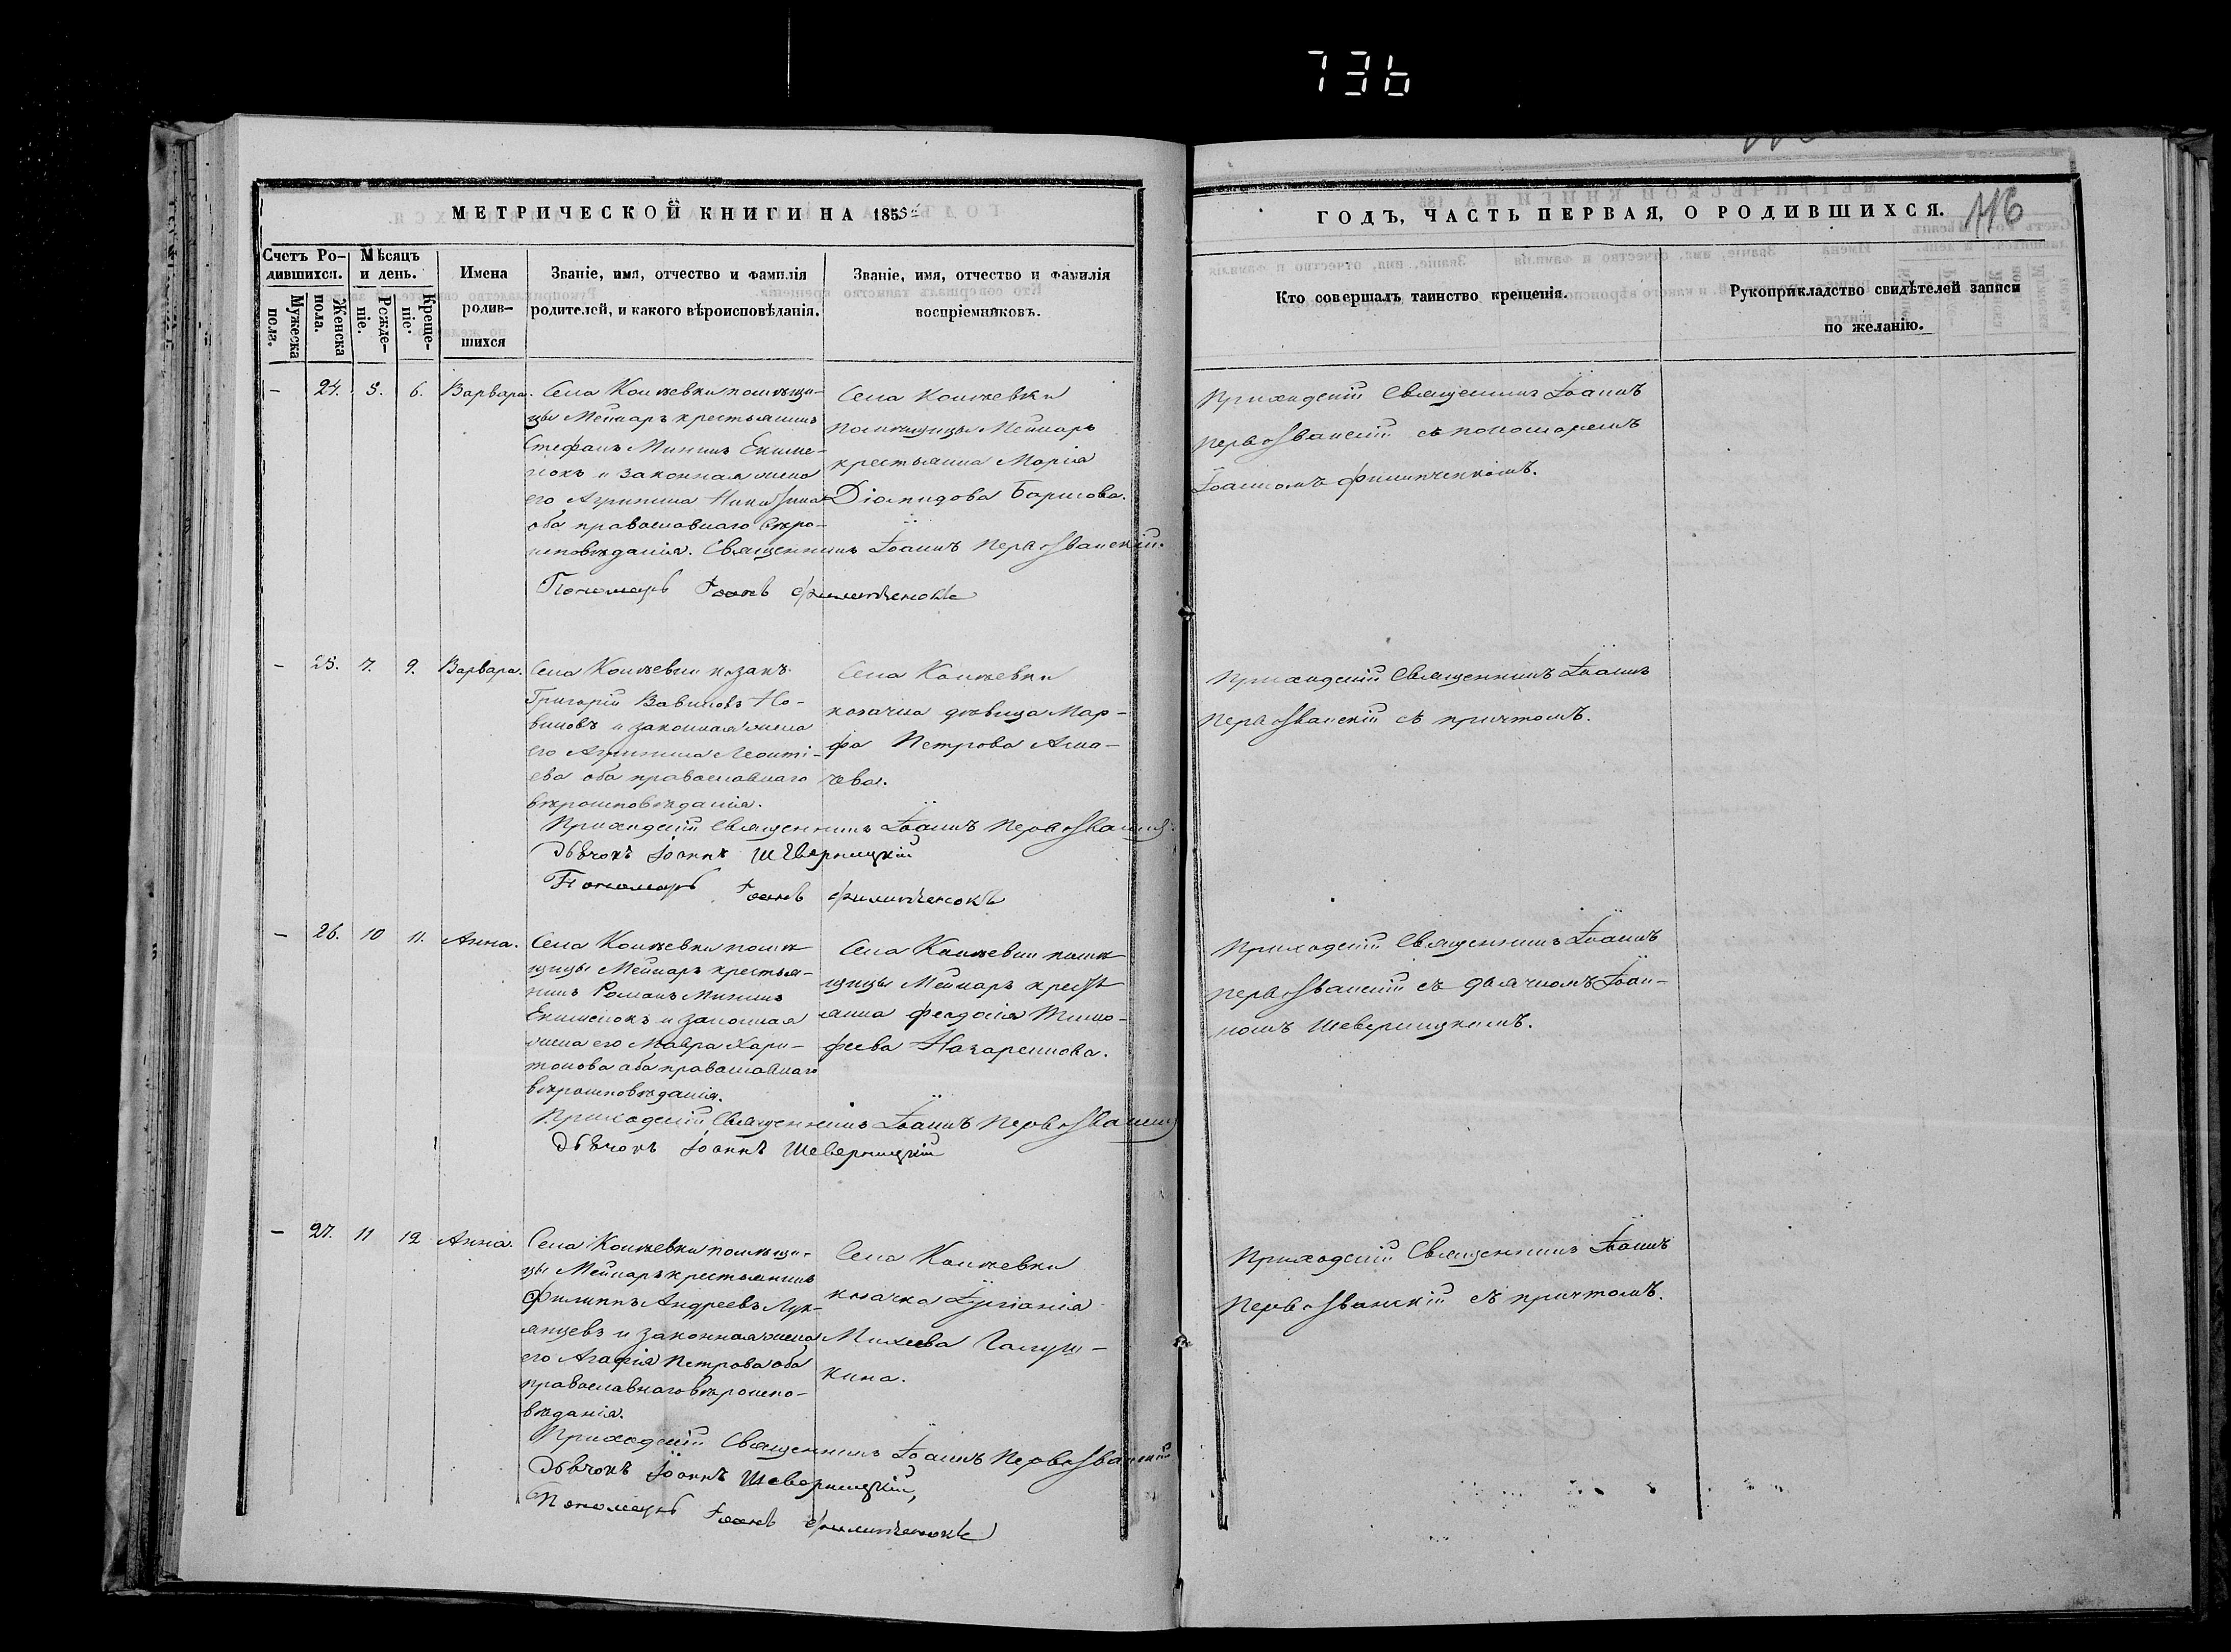 736
МЕТРИЧЕСКОЙ КНИГИ НА 185
ГОДЪ, ЧАСТЬ ПЕРВАЯ, О РОДИВШИХСЯ.
116
Счетъ Ро-
дившихся.
Мужеска
пола.
Женска
пола.
Мѣсяцъ
и день.
Рожде-
ніе.
Креще-
ніе.
Имена
родив-
шихся
Званіе, имя, отчество и фамилія
родителей, и какого вѣроисповѣданія.
Званіе, имя, отчество и фамилія
воспріемниковъ.
Кто совершалъ таинство крещенія.
Рукоприкладство свидѣтелей записи
по желанію.
— 24. 5. 6. Варвара.
Села помѣщи-
цы крестьянинъ
Стефанъ Мининъ Екиме-
нокъ и законная жена
его Агрипина
оба православнаго вѣро-
исповѣданія. Священникъ Іоаннъ Первозванскій.
Пономарь Іоаннъ Филипченокъ
Села
помѣщицы
крестьянка Марія
Діомидова Борисова.
Приходскій Священникъ Іоаннъ
Первозванскій съ пономаремъ
Іоанномъ Филипченкомъ.
— 25. 7. 9. Варвара.
Села козакъ
Григорій Вавиловъ Но-
виковъ и законная жена
его Агрипина Леонті-
ева оба православнаго
вѣроисповѣданія.
Приходскій Священникъ Іоаннъ Первозванскій
Дьячокъ Іоаннъ Шеверницкій
Пономарь Іоаннъ Филипченокъ
Села
козачка дѣвица Мар-
фа Петрова
Приходскій Священникъ Іоаннъ
Первозванскій съ причтомъ.
— 26. 10 11. Анна.
Села помѣ
щицы крестья-
нинъ Романъ Мининъ
Екименокъ и законная
жена его Мавра Хари-
тонова оба православнаго
вѣроисповѣданія.
Приходскій Священникъ Іоаннъ Первозванскій
Дьячокъ Іоаннъ Шеверницкій
Села помѣ
щицы кресть
янка Феодосія Тимо-
феева Назаренкова.
Приходскій Священникъ Іоаннъ
Первозванскій съ дьячкомъ Іоан-
номъ Шеверницкимъ.
— 27. 11 12 Анна.
Села помѣщи-
цы крестьянинъ
Филиппъ Андреевъ Лук-
янцевъ и законная жена
его Агафія Петрова оба
православнаго вѣроиспо-
вѣданія.
Приходскій Священникъ Іоаннъ Первозванскій
Дьячокъ Іоаннъ Шеверницкій,
Пономарь Іоаннъ Филипченокъ
Села
козачка Іуліанія
Михеева Галуш-
кина.
Приходскій Священникъ Іоаннъ
Первозванскій съ причтомъ.